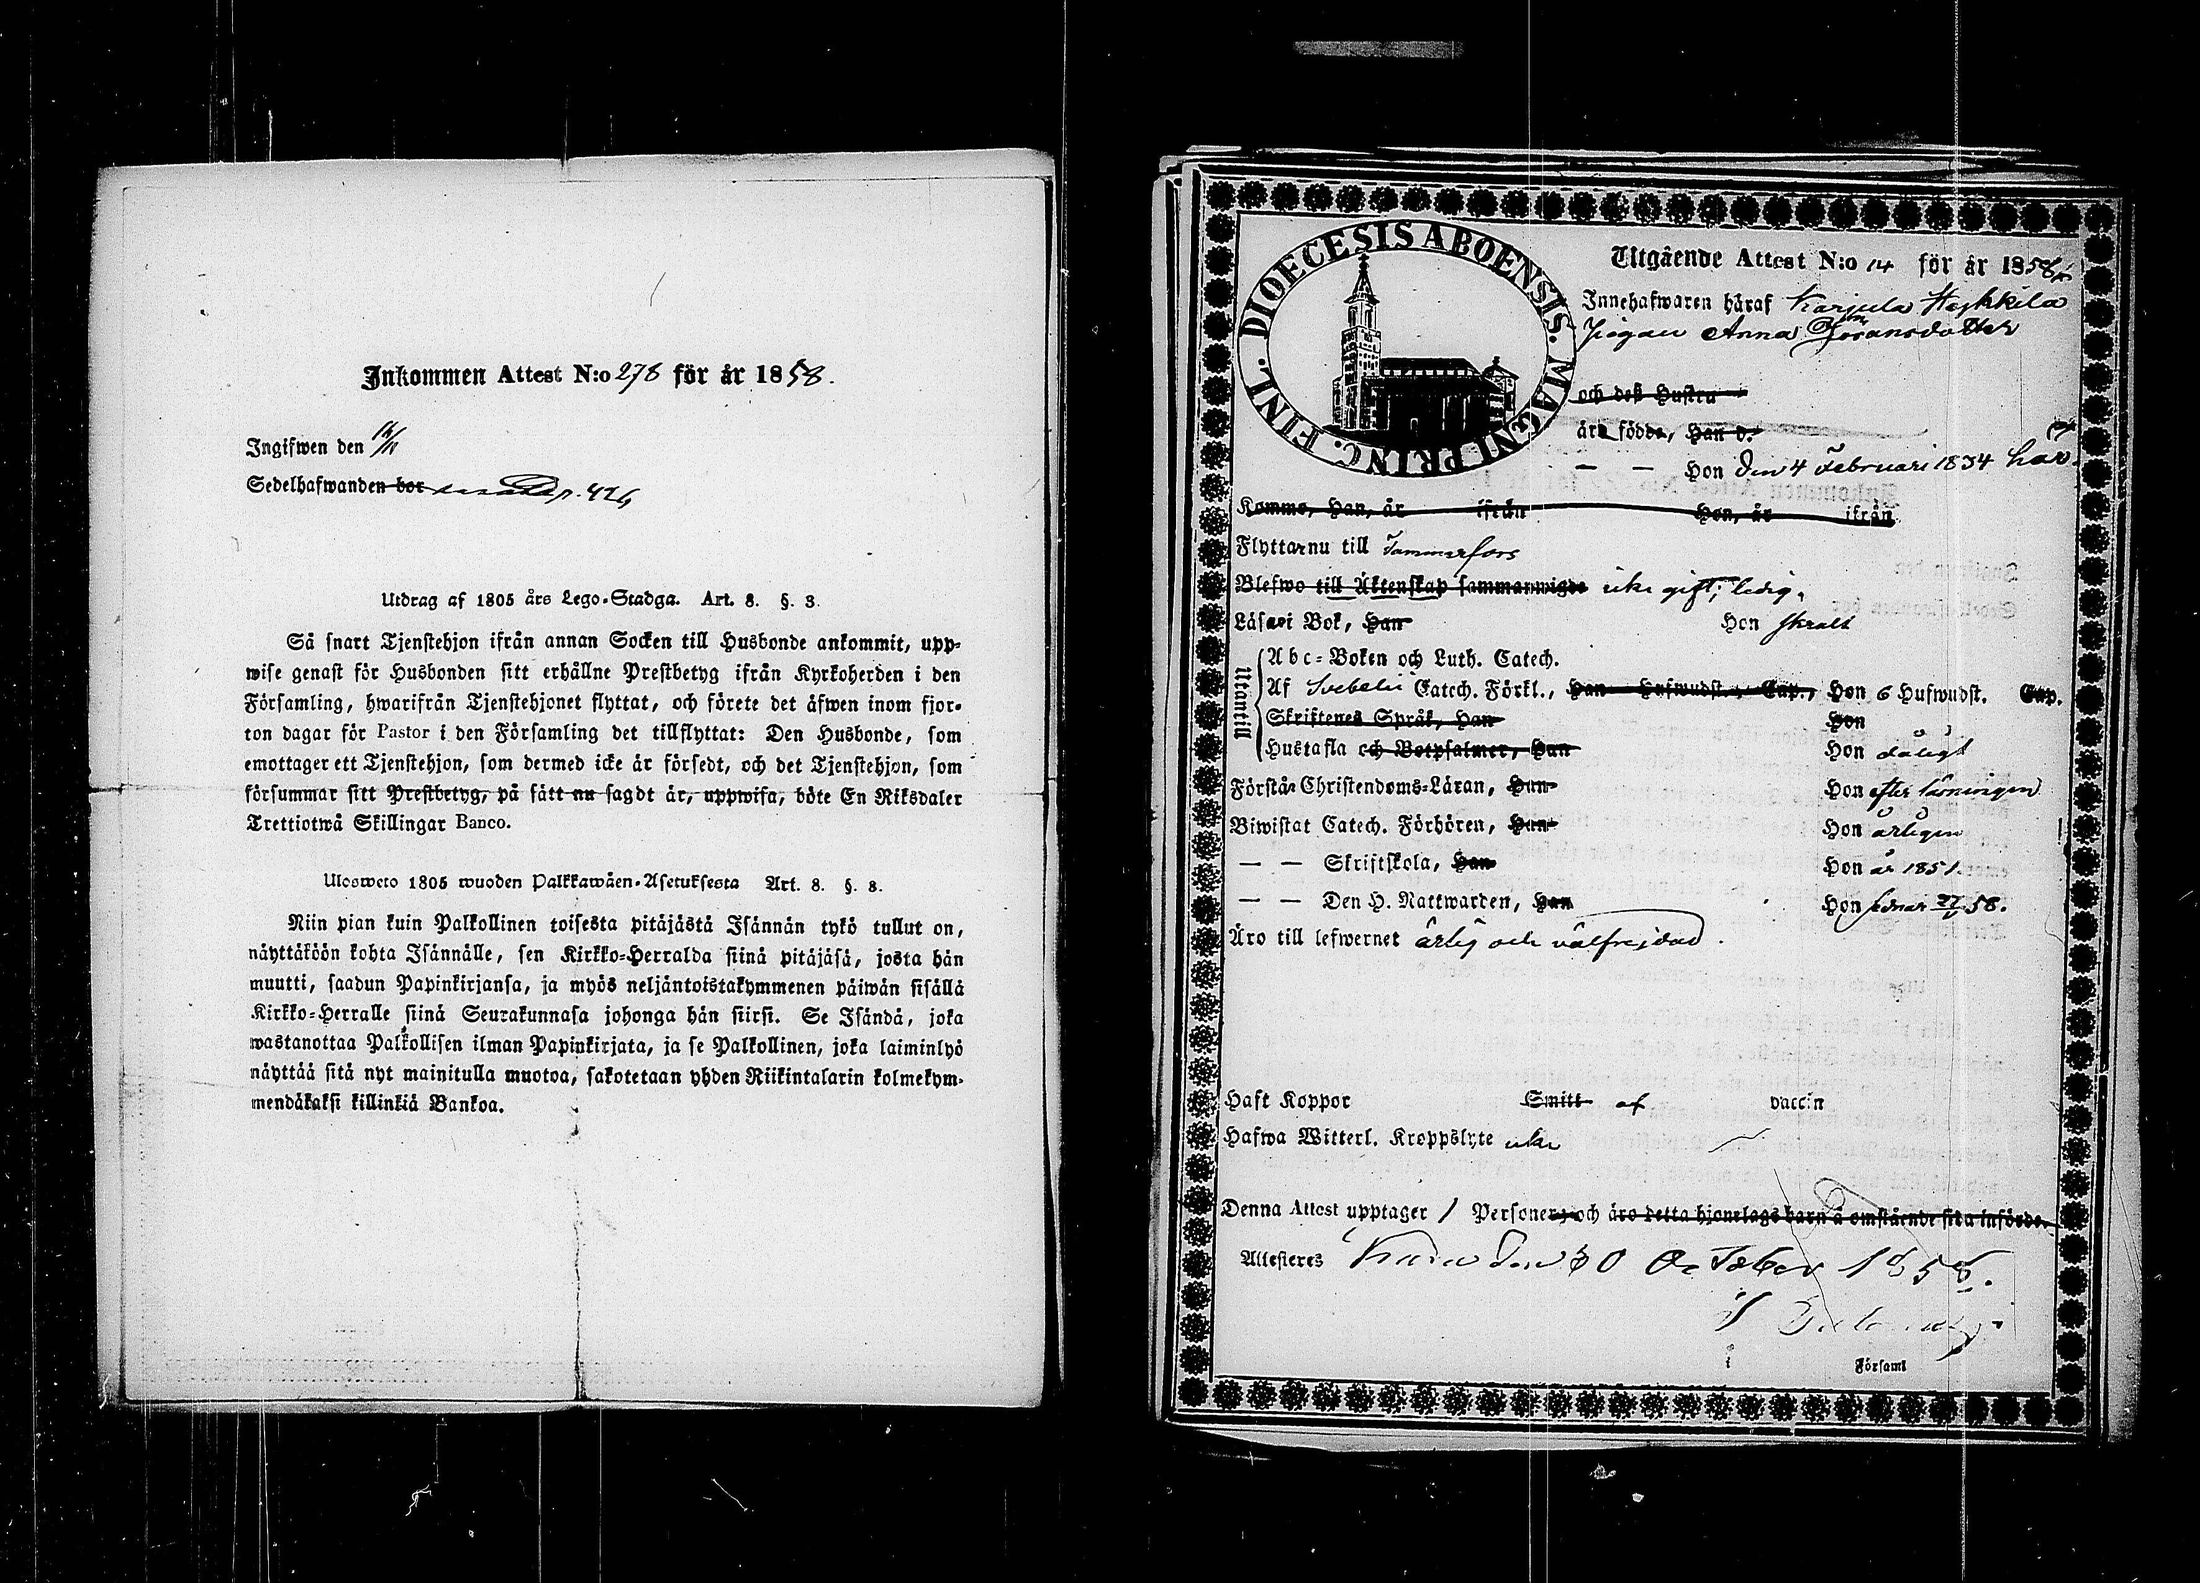 Inkommen Attest N:o 278 för år 1858.
Ingifwen den
Sedelhafwanden bor p. 426
Utdrag af 1805 års Lego-Stadga. Art. 8. §. 3.
Så snart Tjenstehjon ifrån annan Socken till Husbonde ankommit, upp-
wise genast för Husbonden sitt erhållne Prestbetyg ifrån Kyrkoherden i den
Församling, hwarifrån Tjenstehjonet flyttat, och förete det äfwen inom fjor-
ton dagar för Pastor i den Församling det tillflyttat: Den Husbonde, som
emottager ett Tjenstehjon, som dermed icke är försedt, och det Tjenstehjon, som
försummar sitt Prestbetyg, på sätt nu sagdt är, uppwisa, böte En Riksdaler
Trettiotwå Skillingar Banco.
Ulosweto 1805 wuoden Palkkawäen-Asetuksesta Art. 8. §. 3.
Niin pian kuin Palkollinen toisesta pitäjästä Isännän tykö tullut on,
näyttäköön kohta Isännälle, sen Kirkko-Herralda siinä pitäjäsä, josta hän
muutti, saadun Papinkirjansa, ja myös neljäntoistakymmenen päiwän sisällä
Kirkko-Herralle siinä Seurakunnasa johonga hän siirsi. Se Isändä, joka
wastanottaa Palkollisen ilman Papinkirjata, ja se Palkollinen, joka laiminlyö
näyttää sitä nyt mainitulla muotoa, sakotetaan yhden Riikintalarin kolmekym-
mendäkaksi killinkiä Bankoa.
DIOECESIS ABOENSIS. MAGNI PRINC. FINL.
Utgående Attest N:o 14 för år 1858
Innehafwaren häraf Karjula Heikkila
Pigan Anna Göransdotter
och deß Hustru
äro födde, Han d.
— — Hon den 4 Februari 1834 här
Komme, Han, år ifrån Hon, år ifrån
Flyttar nu till Tammerfors
Blefwo till Äktenskap sammanwigde icke gift; ledig.
Läsa i Bok, Han Hon skralt
Utantill
Abc-Boken och Luth. Catech.
Af Svebelii Catech. Förkl., Han Hufwudst., Cap., Hon 6 Hufwudst. Cap.
Skriftenes Språk, Han Hon
Hustafla och Botpsalmer, Han Hon dåligt
Förstå Christendoms-Läran, Han Hon efter läsningen
Biwistat Catech. Förhören, Han Hon årligen
— — Skriftskola, Han Hon år 1851
— — Den H. Nattwarden, Han Hon 58.
Äro till lefwernet ärlig och välfrejdad.
Haft Koppor Smitt af vaccin
Hafwa Witterl. Kroppslyte icke
Denna Attest upptager 1 Personer, och äro detta hjonelags barn å omstående sida införde.
Attesteres Kuru den 30 October 1858.
i Församl